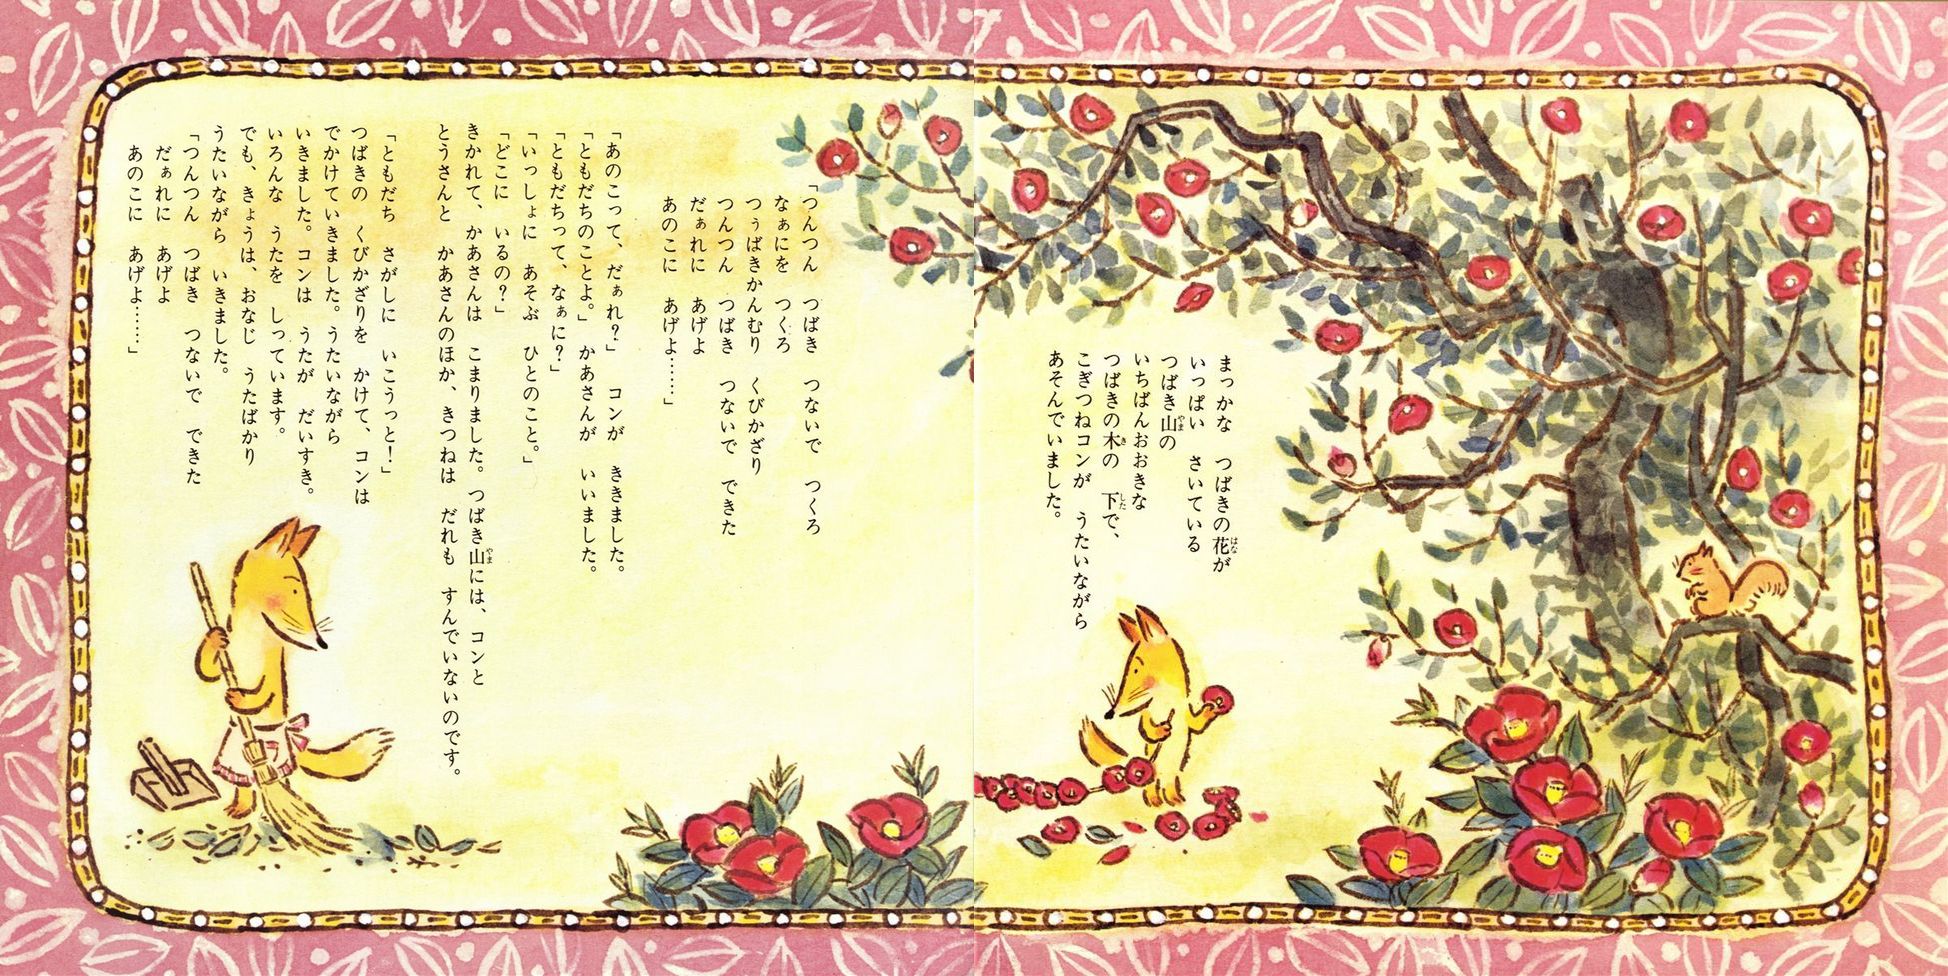 まっかな　つばきの花が
いっぱい　さいている
つばき山の
いちばんおおきな
つばきの木の　下で、
こぎつねコンが　うたいながら
あそんでいました。
「つんつん　つばき　つないで　つくろ
なぁにを　つくろ
つぅばきかんむり　くびかざり
つんつん　つばき　つないで　できた
だぁれに　あげよ
あのこに　あげよ……」
「あのこって、だぁれ？」　コンが　ききました。
「ともだちのことよ。」　かあさんが　いいました。
「ともだちって、なぁに？」
「いっしょに　あそぶ　ひとのこと。」
「どこに　いるの？」
きかれて、かあさんは　こまりました。つばき山には、コンと
とうさんと　かあさんのほか、きつねは　だれも　すんでいないのです。
「ともだち　さがしに　いこうっと！」
つばきの　くびかざりを　かけて、コンは
でかけていきました。うたいながら
いきました。コンは　うたが　だいすき。
いろんな　うたを　しっています。
でも、きょうは、おなじ　うたばかり
うたいながら　いきました。
「つんつん　つばき　つないで　できた
だぁれに　あげよ
あのこに　あげよ……」